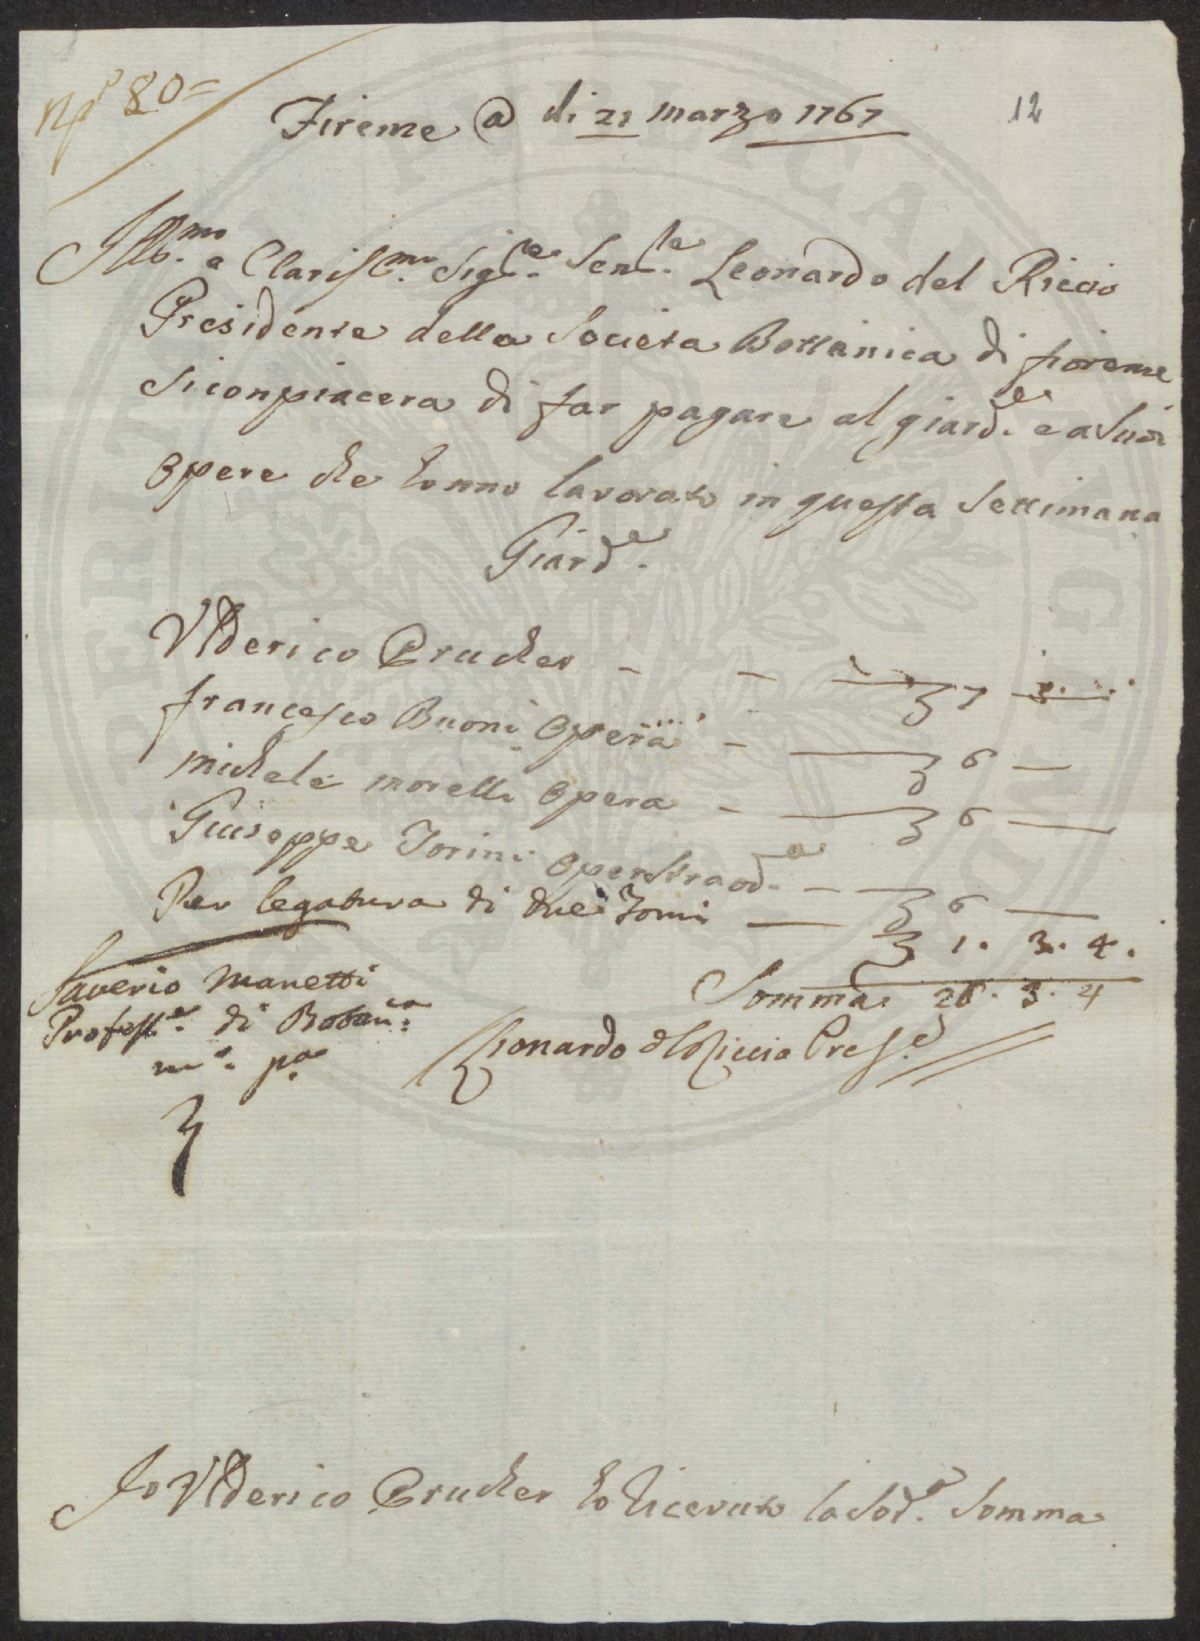 N.º 80=
12
Firenze @ di 21 marzo 1767
Ill.mo e Clariss.mo Sig.re Sen.re Leonardo del Riccio
Presidente della Societa Bottanica di fiorenze
Si conpiacera di far pagare al giard.e e a Suoi
opere che hanno lavorato in questa Settimana
Giard.e
Ulderico Prucher - - 7
francesco Buoni opera - 6 —
michele morelli opera - 6 —
Giuseppe Torini opera straod.a - 6 —
Per legatura di due Tomi — 1. 3. 4.
Somma 26. 3. 4
Saverio Manetti
Profess.e di Botan.ca
m.o p.a
Lionardo del Riccio Pres.e
Io Ulderico Prucher ho Ricevuto la Sod.a Somma